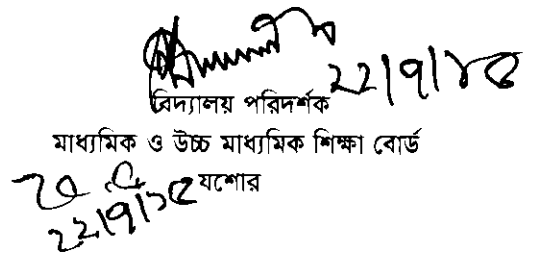 ২২|৭|১৫
বিদ্যালয় পরিদর্শক
মাধ্যমিক ও উচ্চ মাধ্যমিক শিক্ষা বোর্ড
যশোর
২২|৭|১৫